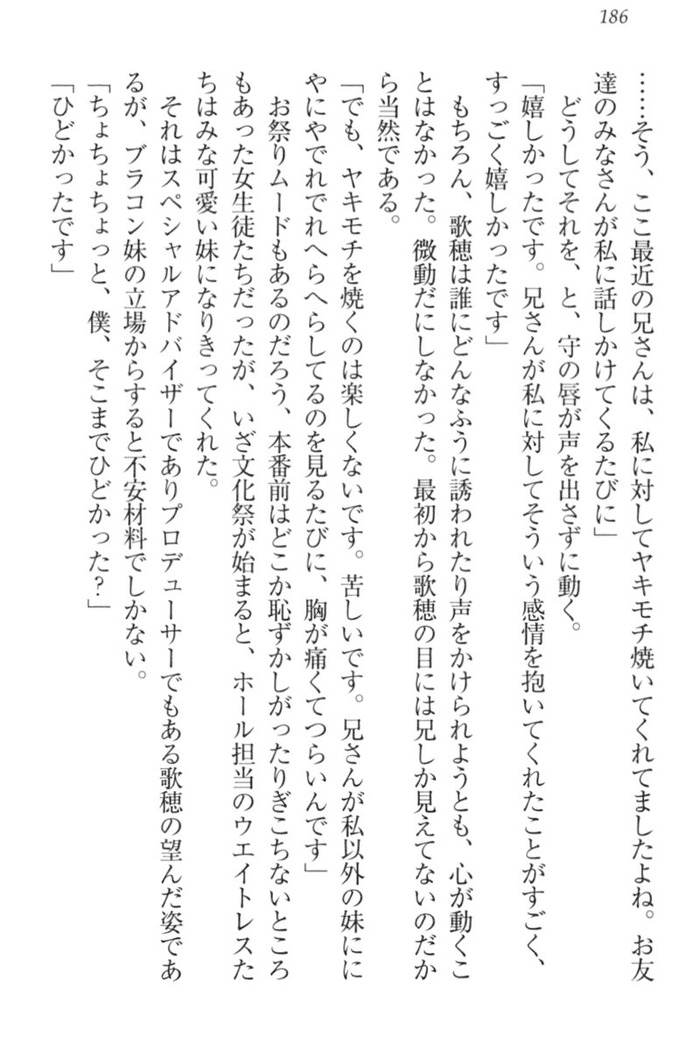 186
……そう、ここ最近の兄さんは、私に対してヤキモチ焼いてくれてましたよね。お友
達のみなさんが私に話しかけてくるたびに」
　どうしてそれを、と、守の唇が声を出さずに動く。
「嬉しかったです。兄さんが私に対してそういう感情を抱いてくれたことがすごく、
すっごく嬉しかったです」
　もちろん、歌穂は誰にどんなふうに誘われたり声をかけられようとも、心が動くこ
とはなかった。微動だにしなかった。最初から歌穂の目には兄しか見えてないのだか
ら当然である。
「でも、ヤキモチを焼くのは楽しくないです。苦しいです。兄さんが私以外の妹にに
やにやでれでれへらへらしてるのを見るたびに、胸が痛くてつらいんです」
　お祭りムードもあるのだろう、本番前はどこか恥ずかしがったりぎこちないところ
もあった女生徒たちだったが、いざ文化祭が始まると、ホール担当のウエイトレスた
ちはみな可愛い妹になりきってくれた。
　それはスペシャルアドバイザーでありプロデューサーでもある歌穂の望んだ姿であ
るが、ブラコン妹の立場からすると不安材料でしかない。
「ちょちょちょっと、僕、そこまでひどかった？」
「ひどかったです」